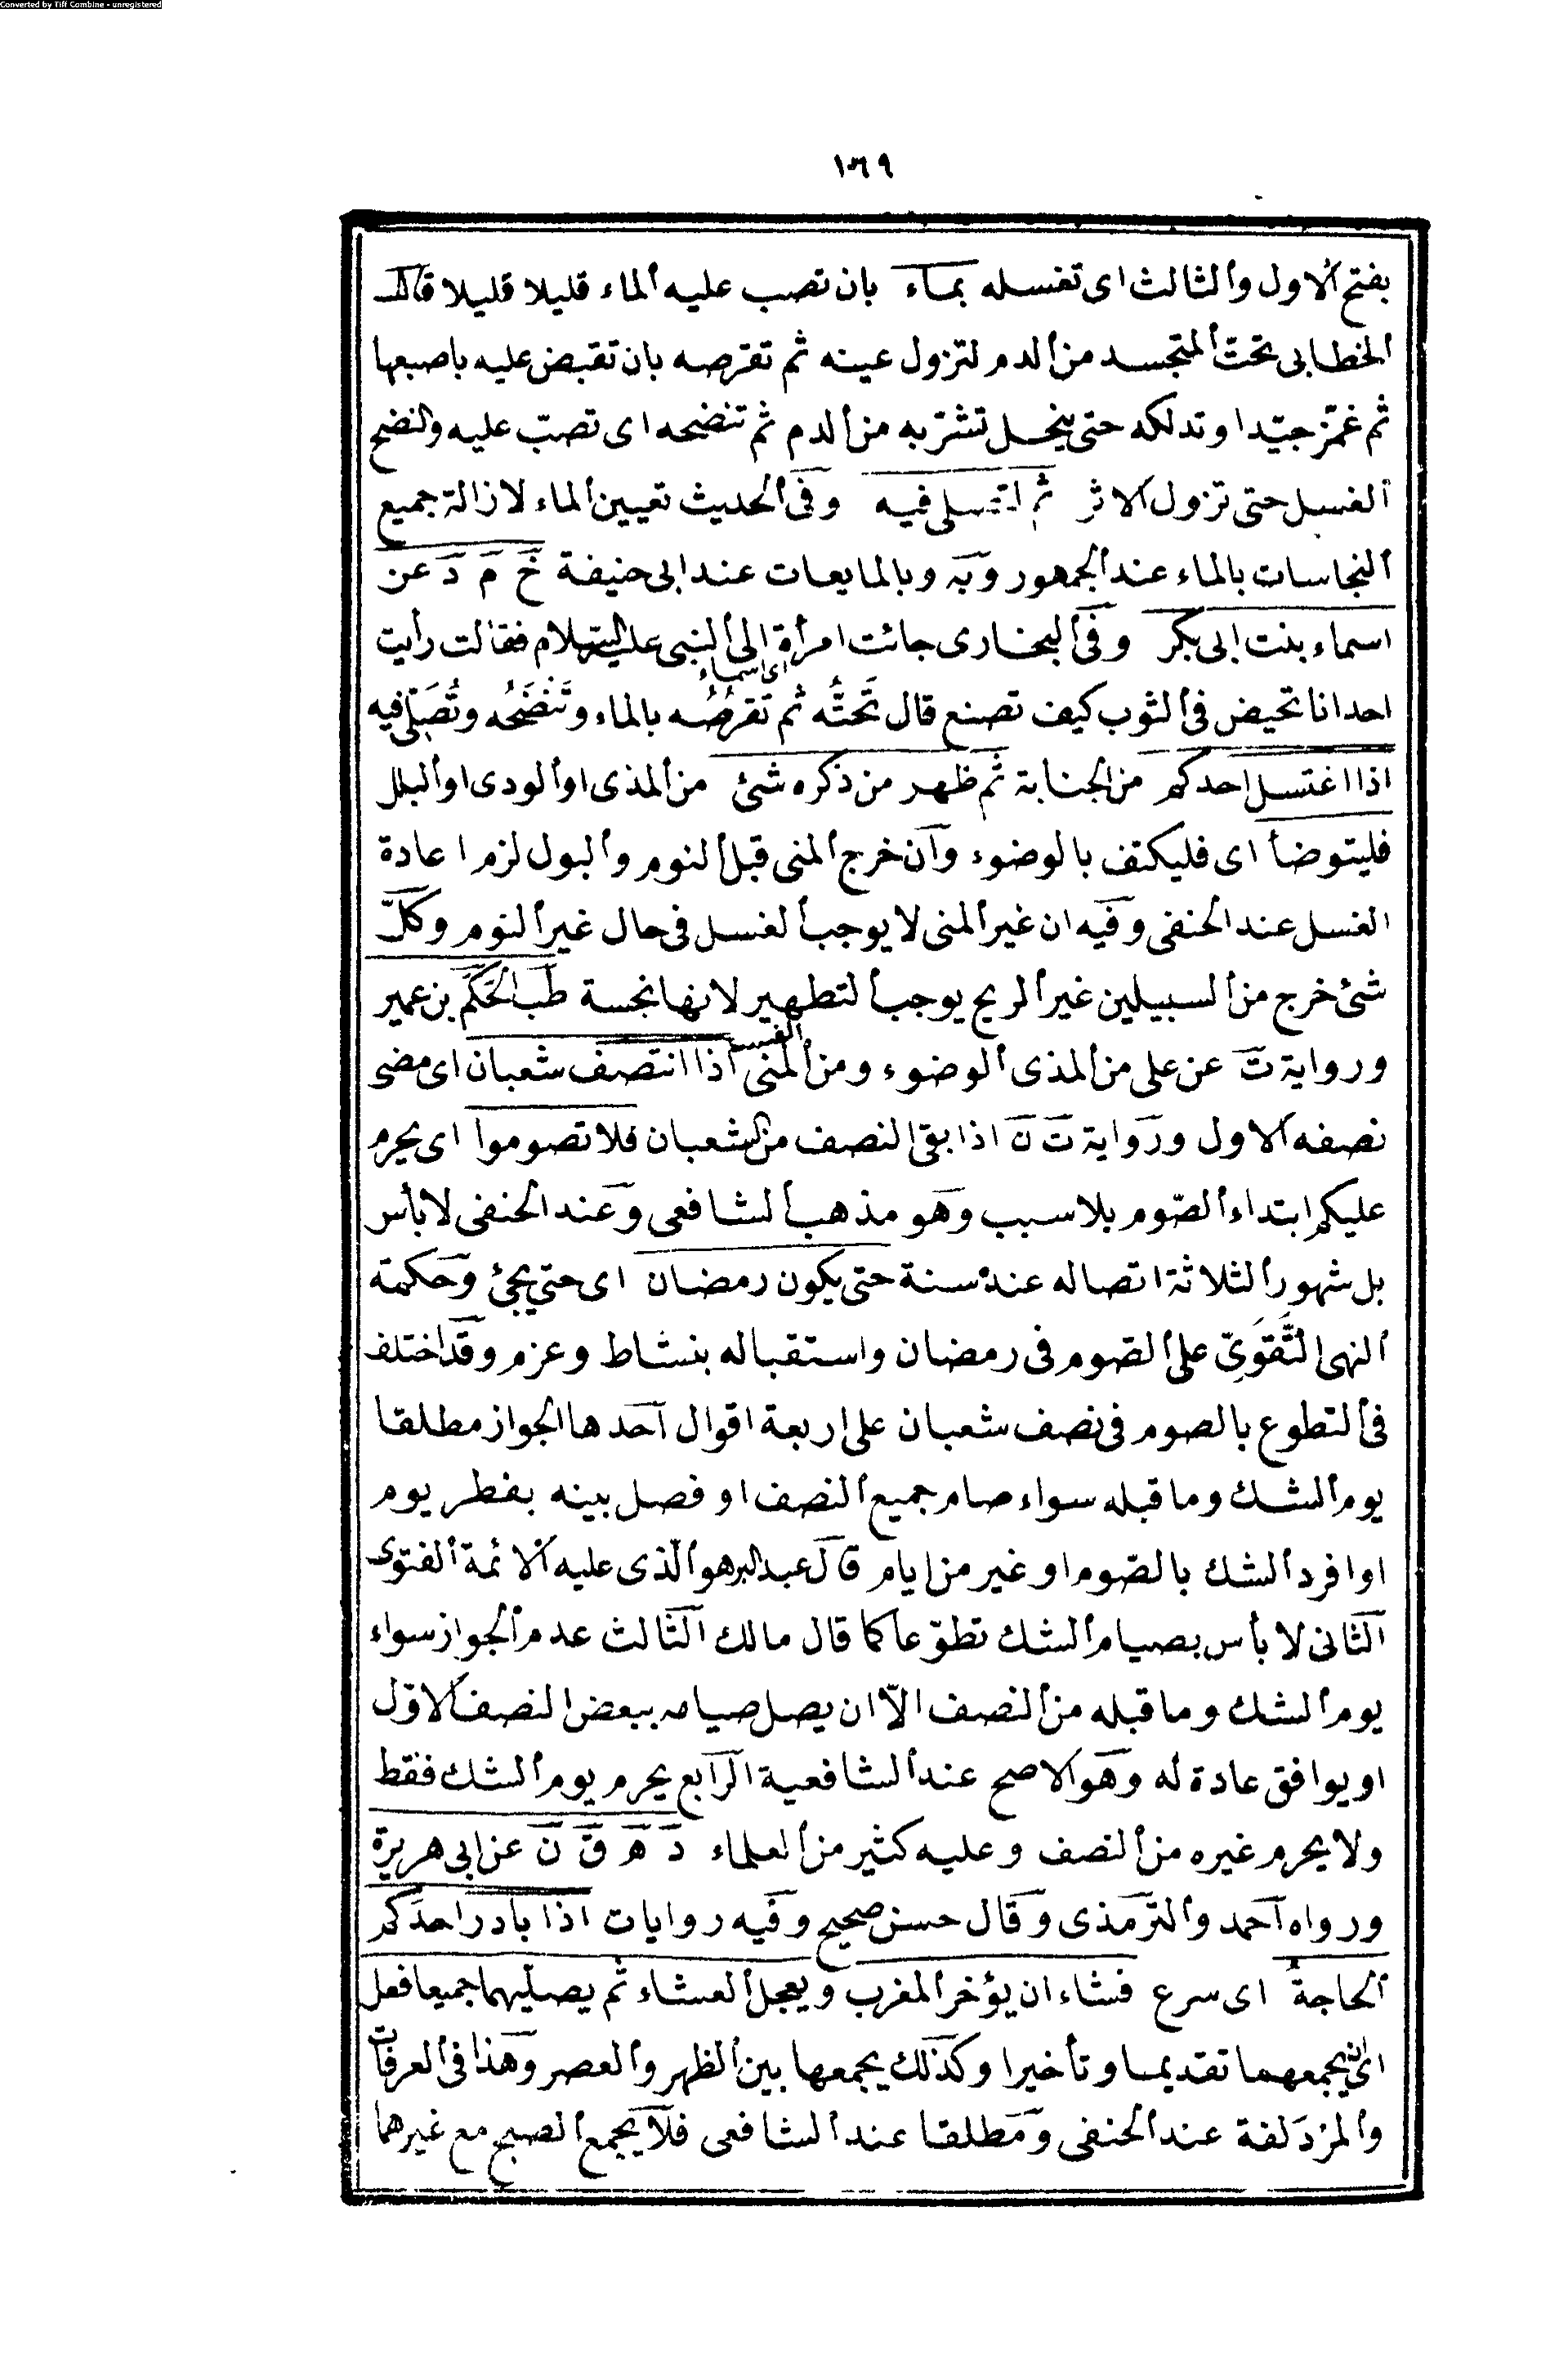 Converted by Tiff Combine - unregistered
١٣٩
بفتح الاول والثالث اى تغسله بماء بان تصب عليه الماء قليلا قليلا قال
الخطابى تحت المتجسد من الدم لتزول عينه ثم تقرصه بان تقبض عليه باصبعها
ثم غمز جيّدا وتدلكه حتى ينحل تشرّبه من الدم ثم تنضحه اى تصبّ عليه والنضح
الغسل حتى تزول الاثر ثم لتصلى فيه وفى الحديث تعيين الماء لازالة جميع
النجاسات بالماء عند الجمهور وبه وبالمايعات عند ابى حنيفة خ م د عن
اسماء بنت ابى بكر وفى البخارى جائت امرأة الى النبى عليه السلام فقالت رأيت
اى اسماء
احدانا تحيض فى الثوب كيف تصنع قال تَحتُّه ثم تقرصُه بالماء وتَنْضَحُه وتُصَلّى فيه
اذا اغتسل احدكم من الجنابة ثم ظهر من ذكره شئ من المذى او الودى او البلل
فليتوضأ اى فليكتف بالوضوء وان خرج المنى قبل النوم والبول لزم اعادة
الغسل عند الحنفى وفيه ان غير المنى لا يوجب الغسل فى حال غير النوم وكلّ
شئ خرج من السبيلين غير الريح يوجب التطهير لانها نجسة طب الحكم بن عمير
ورواية ت عن على من المذى الوضوء ومن المنى الغسل اذا انتصف شعبان اى مضى
نصفه الاول ورواية ت ن اذا بقى النصف من الشعبان فلا تصوموا اى يحرم
عليكم ابتداء الصّوم بلا سبب وهو مذهب الشافعى وعند الحنفى لا بأس
بل شهور الثلاثة اتصاله عنده سنة حتى يكون رمضان اى حتى يجئ وحكمة
النهى التَّقَوِّىّ على الصّوم فى رمضان واستقباله بنشاط وعزم وقد اختلف
فى التطوع بالصوم فى نصف شعبان على اربعة اقوال احدها الجواز مطلقا
يوم الشك وما قبله سواء صام جميع النصف او فصل بينه بفطر يوم
او افرد الشك بالصّوم او غير من ايام قال عبد البر هو الّذى عليه الائمة الفتوى
الثانى لا بأس بصيام الشك تطوّعا كما قال مالك الثالث عدم الجواز سواء
يوم الشك وما قبله من النصف الاّ ان يصل صيامه ببعض النصف الاوّل
او يوافق عادة له وهو الاصح عند الشافعية الرابع يحرم يوم الشك فقط
ولا يحرم غيره من النصف وعليه كثير من العلماء د ه ق ن عن ابى هريرة
ورواه احمد والترمذى وقال حسن صحيح وفيه روايات اذا بادر احدكم
الحاجةُ اى سرع فشاء ان يؤخر المغرب ويعجل العشاء ثم يصلّيهما جميعا فعل
اى ان يجمعهما تقديما وتأخيرا وكذلك يجمعها بين الظهر والعصر وهذا فى العرفات
والمزدلفة عند الحنفى ومطلقا عند الشافعى فلا يجمع الصبح مع غيرهما